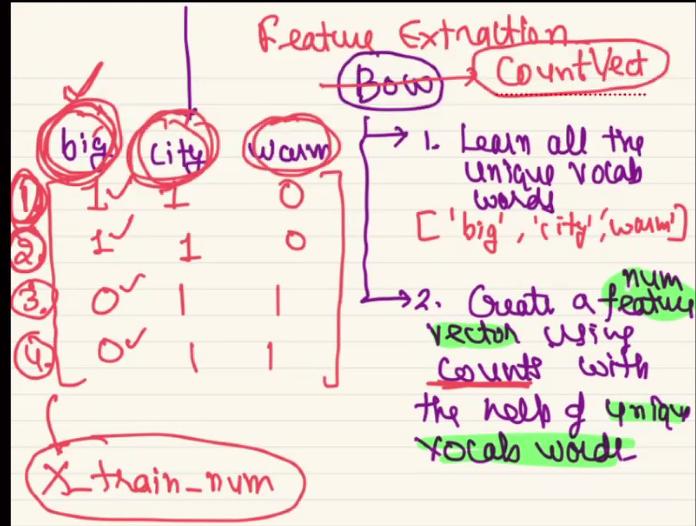 Feature Extraction
BOW CountVect
big city warm
1. 1 1 0
2. 1 1 0
3. 0 1 1
4. 0 1 1
X_train_num
1. Learn all the
unique vocab
words
['big', 'city', 'warm']
2. Create a num feature
vector using
counts with
the help of unique
vocab words